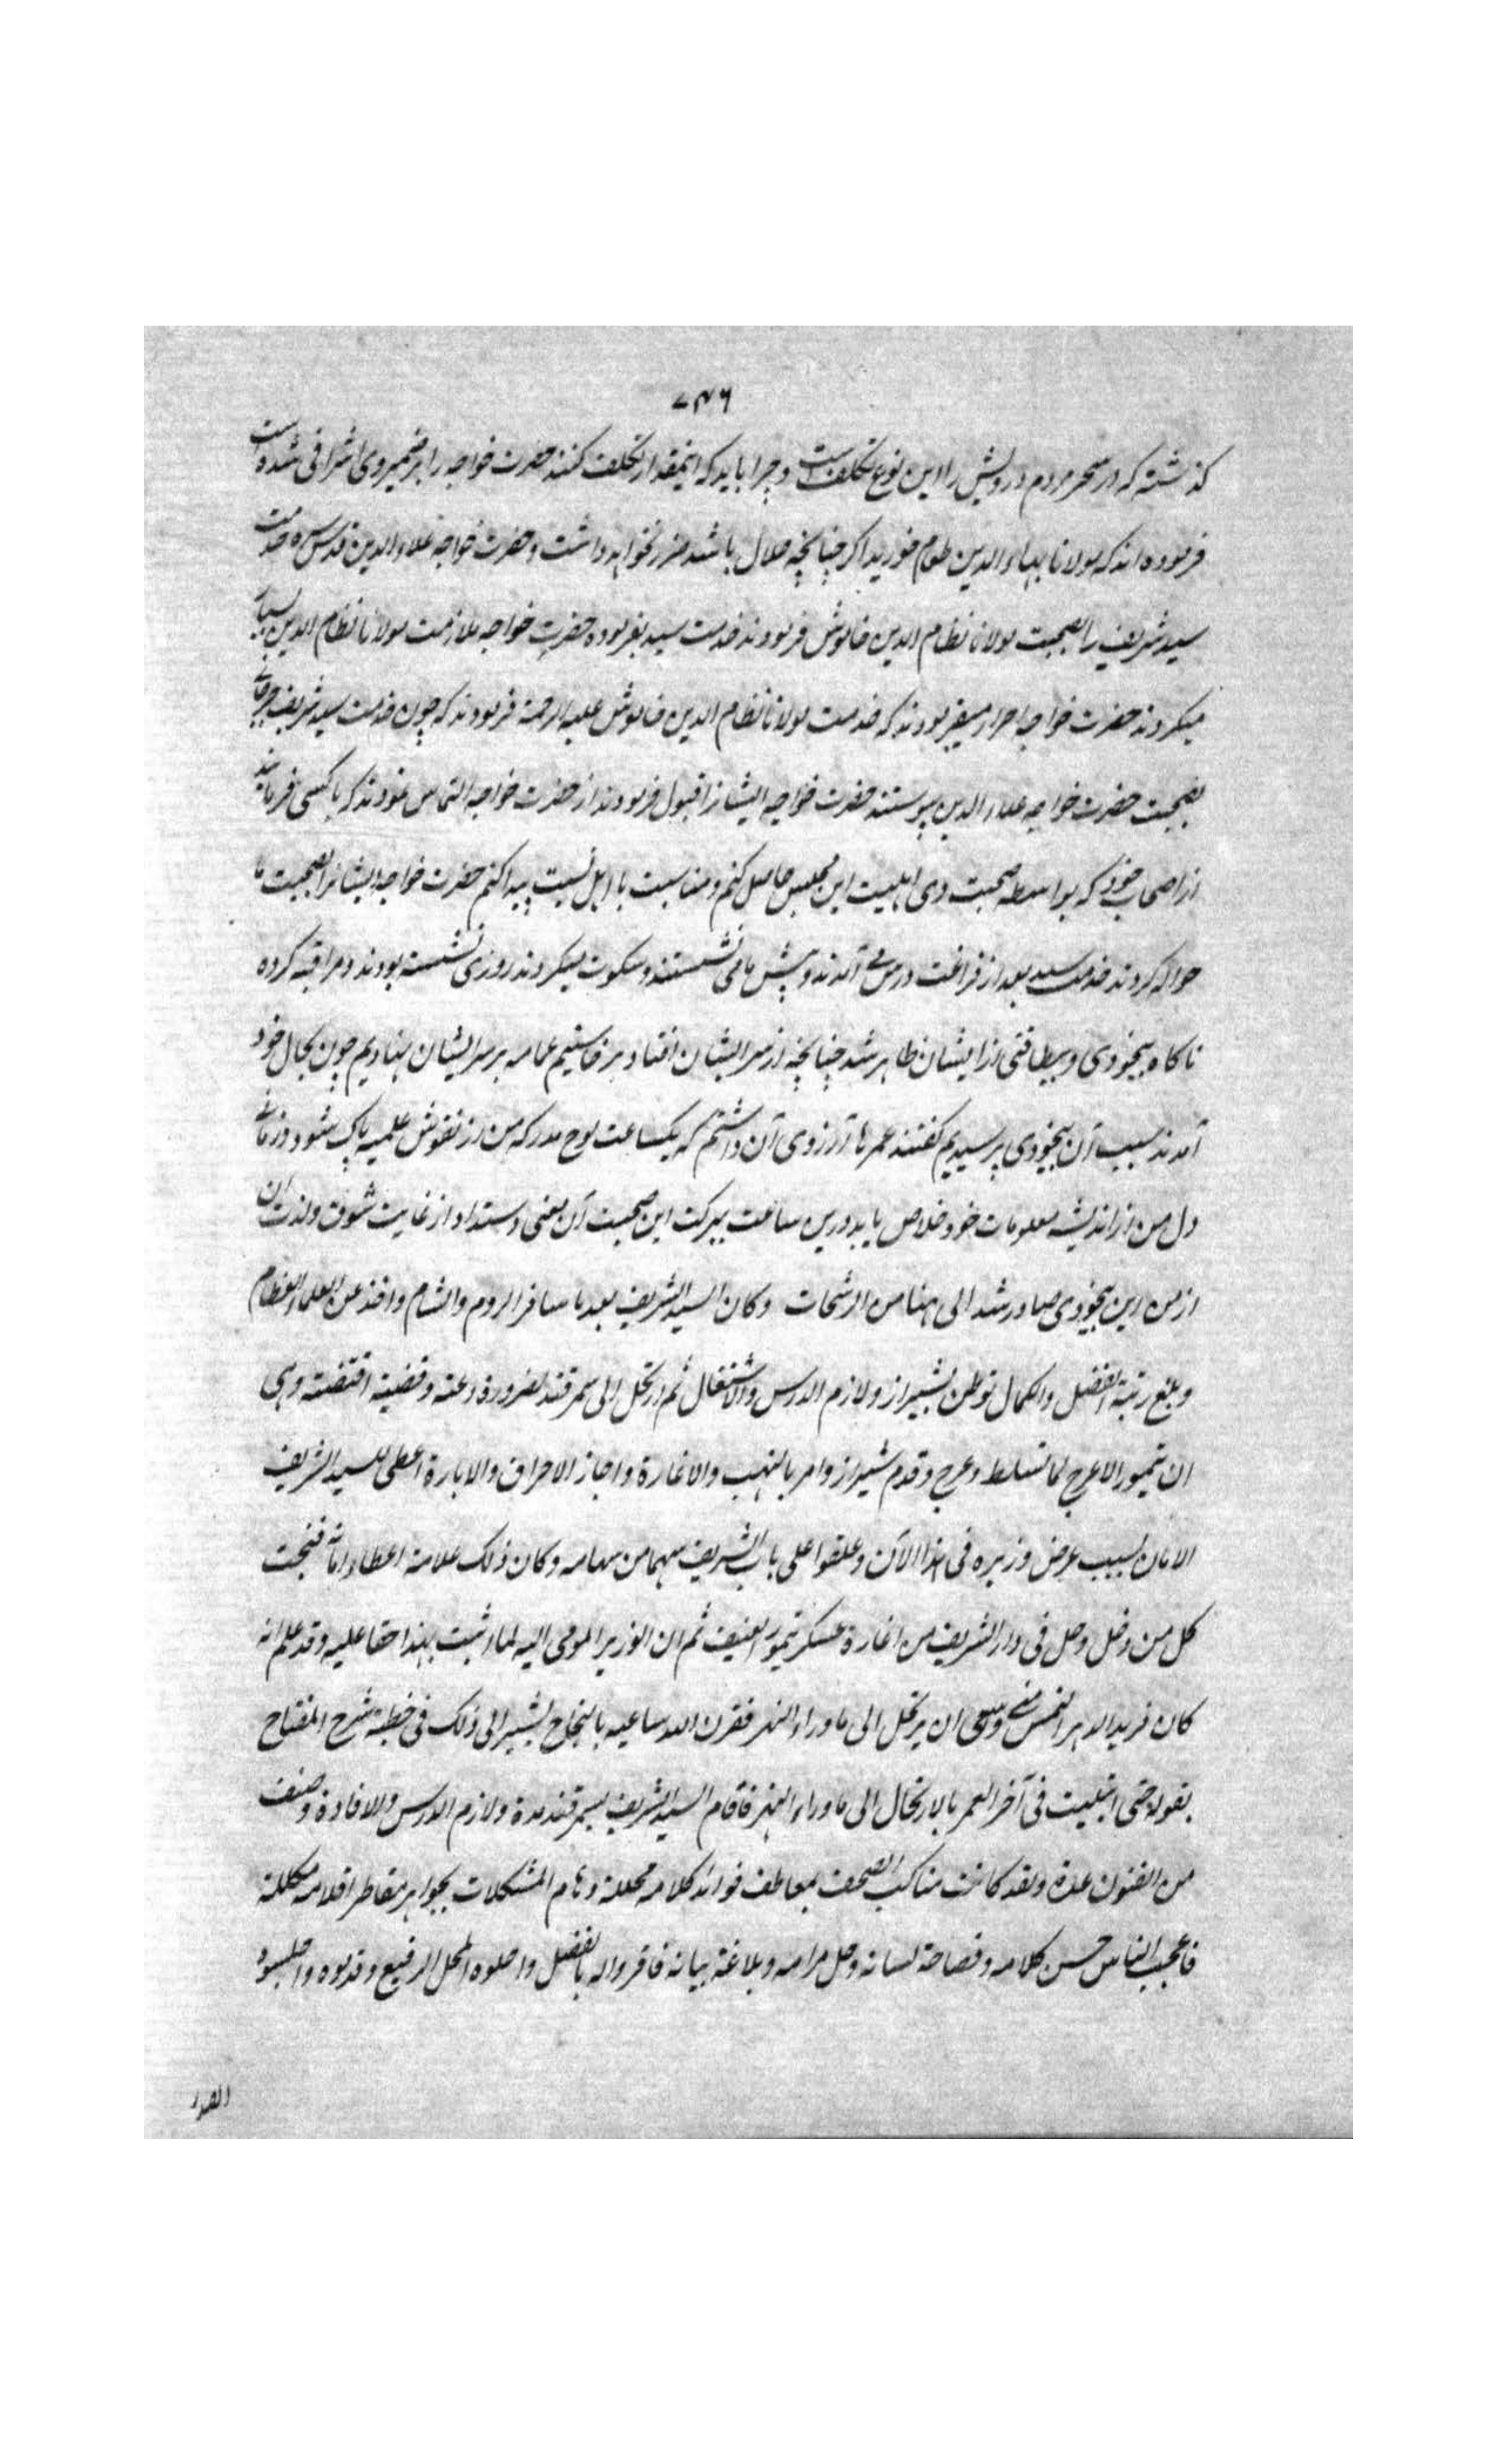 ٧٤٦
كذشته كه در سحر مردم درويش را اين نوع تكلف است و چرا بايد كه اينمقدار تكلف كنند حضرت خواجه را بر ضمير وى اشراقى شده است
فرموده اند كه مولانا بهاء الدين طعام خوريد اكر چنانچه حلال باشد ضرر نخواهد داشت و حضرت خواجه علاء الدين قدس سره خدمت
سيد شريف را بصحبت مولانا نظام الدين خاموش فرمودند خدمت سيد بفرموده حضرت خواجه ملازمت مولانا نظام الدين بسيار
ميكردند حضرت خواجه احرار ميفرمودند كه خدمت مولانا نظام الدين خاموش عليه الرحمة فرمودند كه چون خدمت سيد شريف جرجانى
بصحبت حضرت خواجه علاء الدين پيوستند حضرت خواجه ايشانرا قبول فرمودند از حضرت خواجه التماس نمودند كه با كسى فرمايند
از اصحاب خود كه بواسطه صحبت وى اهليت اين مجلس حاصل كنم و مناسبت با اهل نسبت پيدا كنم حضرت خواجه ايشانرا بصحبت ما
حواله كردند خدمت سيد بعد از فراغت درس مى آمدند و پيش ما مى نشستند و سكوت ميكردند روزى نشسته بودند و مراقبه كرده
ناكاه بيخودى و بيطاقتى از ايشان ظاهر شد چنانچه از سر ايشان افتاد برخاستيم عمامه بر سر ايشان نهاديم چون بحال خود
آمدند سبب آن بيخودى پرسيديم كفتند عمرها آرزوى آن داشتم كه يكساعت لوح مدركه من از نقوش علميه پاك شود و زمانى
دل من از انديشه معلومات خود خلاص يابد درين ساعت ببركت اين صحبت آن معنى دست داد از غايت شوق و لذت آن
از من اين بيخودى صادر شد الى هنا من الرشحات وكان السيد الشريف بعد ما سافر الروم والشام واخذ عن العلماء العظام
وبلغ رتبة الفضل والكمال توطن بشيراز ولازم الدرس والاشتغال ثم ارتحل الى سمرقند لضرورة دعته وقضية اقتضته وهى
ان تيمور الاعرج لما تسلط وعرج وقدم شيراز وامر بالنهب والاغارة واجاز الاحراق والابارة اعطى للسيد الشريف
الامان بسبب عرض وزيره فى هذا الآن وعلقوا على باب الشريف سهما من سهامه وكان ذلك علامة اعطاء امانه فنجت
كل من دخل وحل فى دار الشريف من اغارة عسكر تيمور العنيف ثم ان الوزير المومى اليه لما ثبت بهذا حقا عليه وقد علم انه
كان فريد الدهر التمس منه وسعى ان يرتحل الى ما وراء النهر فقرن الله ساعيه بالنجاح يشير الى ذلك فى خطبة شرح المفتاح
بقوله حتى ابتليت فى آخر العمر بالارتحال الى ما وراء النهر فاقام السيد الشريف بسمرقند مدة ولازم الدرس والافادة وصنف
من الفنون عدة ولقد كانت مناكب الصحف بمعاطف فوائد كلامه محللة وهام المشكلات بجواهر مقاطر اقلامه مكللة
فاعجب الناس حسن كلامه وفصاحة لسانه وحل مرامه وبلاغة بيانه فاقروا له بالفضل واحلوه المحل الرفيع وقدموه واجلسوه
الصدر